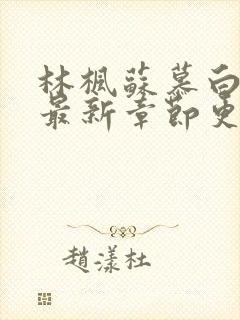 林楓蘇慕白
最新章節更
趙漾杜